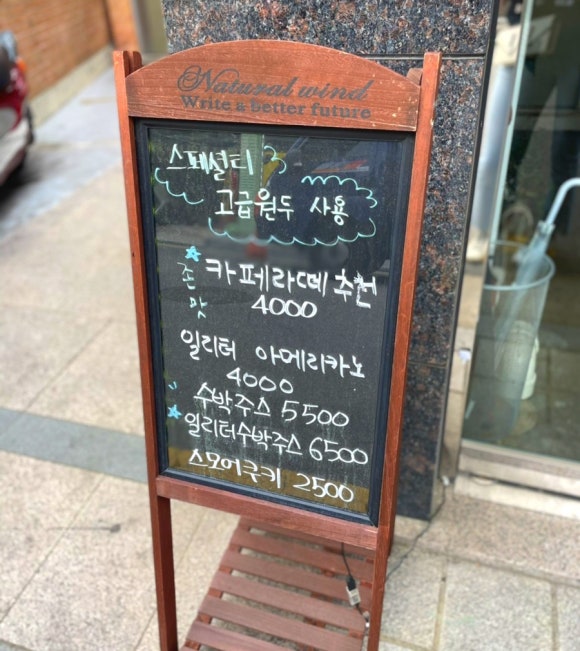 Natural wind
Write a better future
스페셜티
고급원두 사용
존맛 카페라떼 추천
4000
일리터 아메리카노
4000
수박주스 5500
일리터수박주스 6500
스모어쿠키 2500